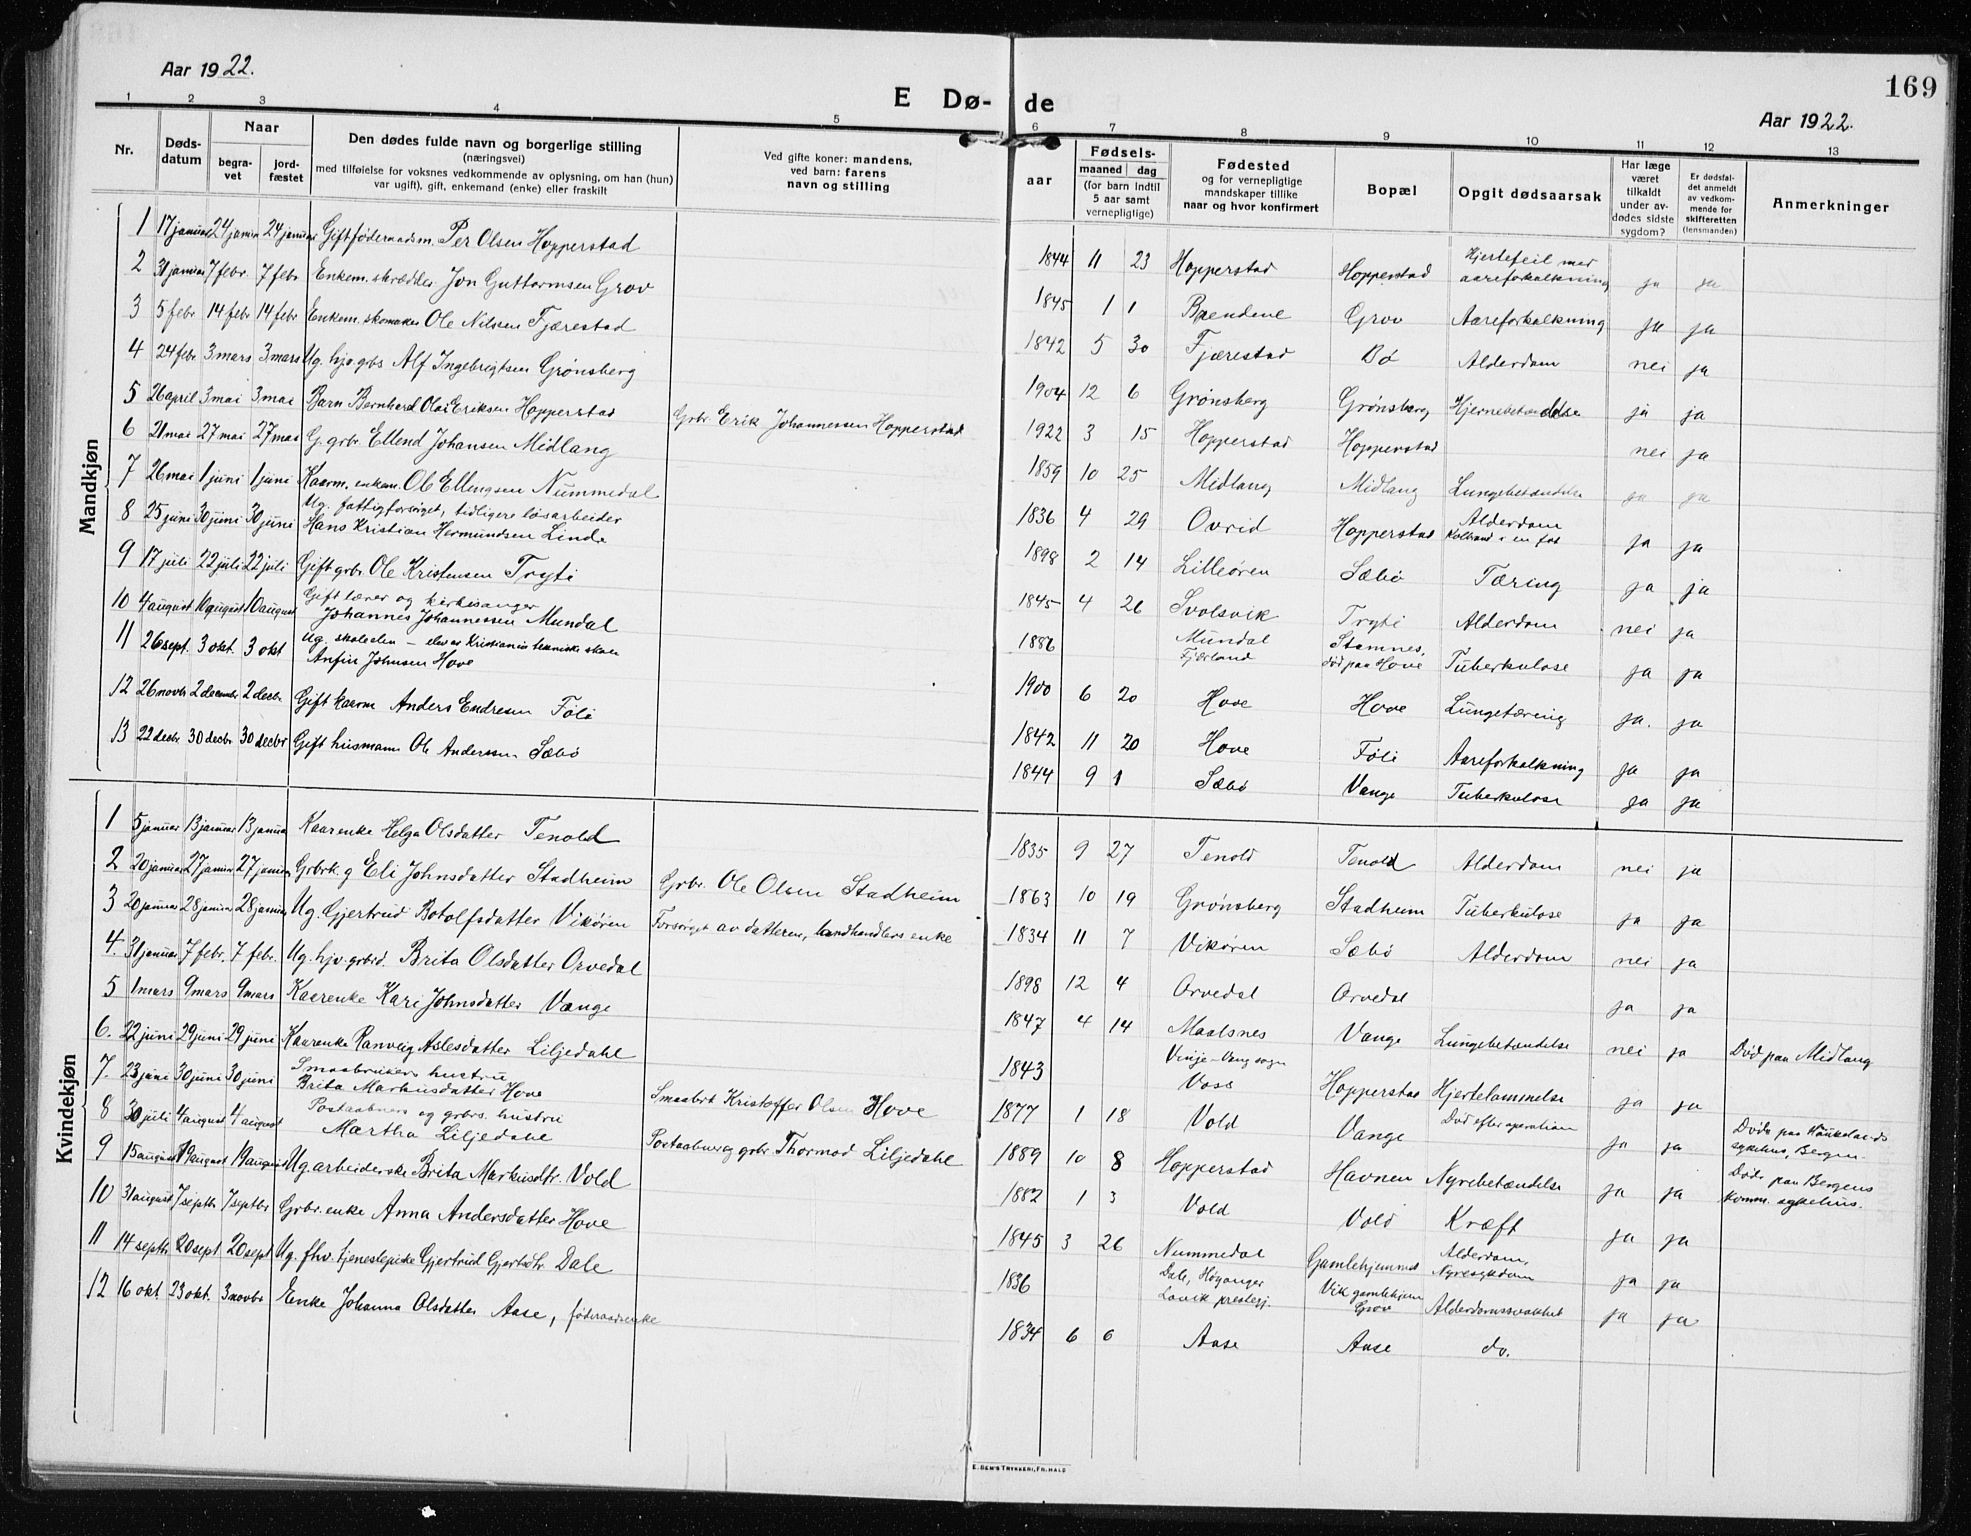 169
Aar 1922.
E Dø- de
Aar 1922.
1 2 3 4 5 6 7 8 9 10 11 12 13
Nr.
Døds-datum
Naar
begra-vet
jord-fæstet
Den dødes fulde navn og borgerlige stilling
(næringsvei)
med tilføielse for voksnes vedkommende av oplysning, om han (hun)
var ugift), gift, enkemand (enke) eller fraskilt
Ved gifte koner: mandens,
ved barn: farens
navn og stilling
aar
Fødsels-
maaned dag
(for barn indtil
5 aar samt
vernepligtige)
Fødested
og for vernepligtige
mandskaper tillike
naar og hvor konfirmert
Bopæl
Opgit dødsaarsak
Har læge
været
tilkaldt
under av-
dødes sidste
sygdom?
Er dødsfal-
det anmeldt
av vedkom-
mende for
skifteretten
(lensmanden)
Anmerkninger
Mandkjøn
1 17 januar 24 januar 24 januar Gift føderaadsm. Per Olsen Hopperstad 1844 11 23 Hopperstad Hopperstad Hjertefeil med aareforkalkning ja ja
2 31 januar 7 febr. 7 febr Enkem. skrædder Jon Guttormsen Grov 1845 1 1 Brendene Grov Aareforkalkning ja ja
3 5 febr 14 febr 14 febr Enkem. skomaker Ole Nilsen Fjærestad 1842 5 30 Fjærestad Bø Alderdom nei ja
4 24 febr 3 mars 3 mars Ug. hjv. grbs Alf Ingebrigtsen Grønsberg 1904 12 6 Grønsberg Grønsberg Hjernebetændelse ja ja
5 26 april 3 mai 3 mai Barn Bernhard Olai Eriksen Hopperstad Grbr. Erik Johannessen Hopperstad 1922 3 15 Hopperstad Hopperstad nei ja
6 21 mai 27 mai 27 mai G. grbr. Ellend Johansen Midlang 1859 10 25 Midlang Midlang Lungebetændelse ja ja
7 26 mai 1 juni 1 juni Kaarm. enkem. Ole Ellingsen Nummedal 1836 4 29 Ovrid Hopperstad Alderdom Kolbrand i en fot ja ja
8 25 juni 30 juni 30 juni Ug. fattigforsørget, tidligere løsarbeider
Hans Kristian Hermundsen Linde 1898 2 14 Lilleøren Sæbø Tæring ja ja
9 17 juli 22 juli 22 juli Gift grbr Ole Kristensen Tryti 1845 4 26 Svolsvik Tryti Alderdom nei ja
10 4 august 10 august 10 august Gift lærer og kirkesanger
Johannes Johannessen Mundal 1886 Mundal Fjærland Stamnes, død paa Hove Tuberkulose ja ja
11 26 sept. 3 okt. 3 okt Ug. skoleelev – elev av Kristiania tekniske skole
Anfin Johnsen Hove 1900 6 20 Hove Hove Lungetæring ja. ja
12 26 novbr 2 decembr 2 decbr Gift kaarm Anders Endresen Føli 1842 11 20 Hove Føli Aareforkalkning ja ja
13 22 decbr 30 decbr 30 decbr Gift husmann Ole Anderssen Sæbø 1844 9 1 Sæbø Vange Tuberkulose ja ja
Kvindekjøn
1 5 januar 13 januar 13 januar Kaarenke Helga Olsdatter Tenold 1835 9 27 Tenold Tenold Alderdom nei ja
2 20 januar 27 januar 27 januar Grbrk. g Eli Johnsdatter Stadheim Grbr. Ole Olsen Stadheim 1863 10 19 Grønsberg Stadheim Tuberkulose ja ja
3 20 januar 28 januar 28 januar Ug. Gjertrud Botolfsdatter Vikøren Forsørget av datteren, landhandlers enke 1834 11 7 Vikøren Sæbø Alderdom nei ja
4. 31 januar 7 febr. 7 febr. Ug. hjv. grbrd. Brita Olsdatter Orvedal 1898 12 4 Orvedal Orvedal ja ja
5 1 mars 9 mars 9 mars Kaarenke Kari Johnsdatter Vange 1847 4 14 Maalsnes Vange Lungebetændelse nei ja Død paa Midlang
6. 22 juni 29 juni 29 juni Kaarenke Ranveig Aslesdatter Liljedahl 1843 Vinje-Vang sogn Voss Hopperstad Hjertelammelse ja ja
7. 23 juni 30 juni 30 juni Smaabrukers hustru
Brita Markusdatter Hove Smaabrt Kristoffer Olsen Hove 1877 1 18 Vold Vange Død efter operation ja ja Døde paa Haukelands sykehus, Bergen.
8 30 juli 4 august 4 august Postaabners og grbrs. hustru
Martha Liljedahl Postaabner og grbr. Thormod Liljedahl 1889 10 8 Hopperstad Havnen Nyrebetændelse ja ja Døde paa Bergens komm. sykehus.
9 15 august 19 august 19 august Ug. arbeiderske Brita Markusdtr. Vold 1882 1 3 Vold Vold Kræft ja ja
10 31 august 7 septbr 7 septbr Grbr. enke Anna Andersdatter Hove 1845 3 26 Nummedal Gamlehjemmet Alderdom, Nyresygdom ja ja
11 14 septbr 20 sept 20 sept Ug. fhv. tjenestepike Gjertrud Gjertsdtr. Dale 1836 Dale, Høyanger Lavik prestegj. Vik gamlehjem Grov Alderdomssvakhet ja ja
12 16 okt. 23 okt. 3 novbr Enke Johanna Olsdatter Aase, føderaadsenke 1834 6 6 Aase Aase do.
E. SEM'S TRYKKERI, FR.HALD